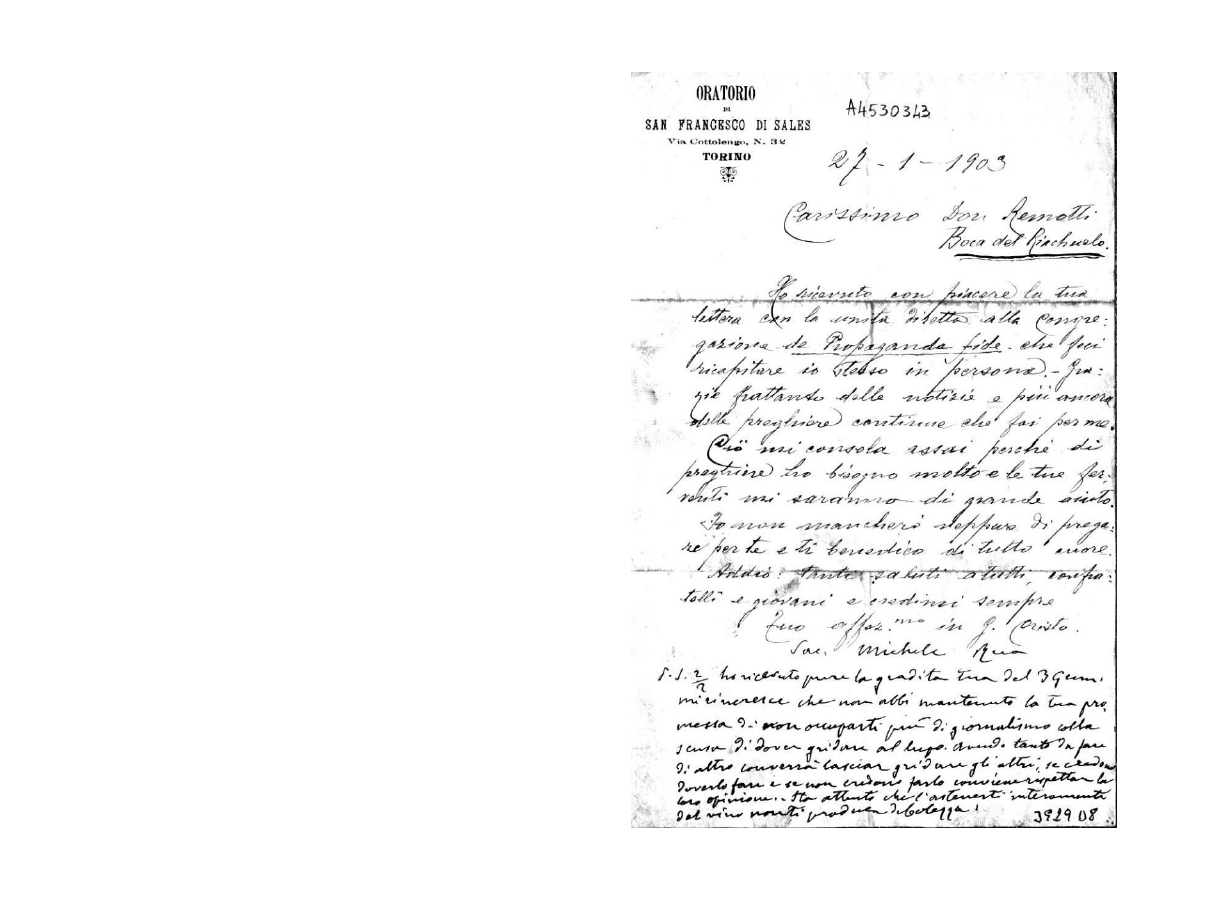 ORATORIO
DI
SAN FRANCESCO DI SALES
Via Cottolengo, N. 32
TORINO
A4530343
27 - 1 - 1903
Carissimo Don Remotti
Boca del Riachuelo.
Ho ricevuto con piacere la tua
lettera con la unita diretta alla Congre:
gazione de Propaganda fide. che feci
ricapitare io stesso in persona. - Gra:
zie frattanto delle notizie e più ancora
delle preghiere continue che fai per me.
Ciò mi consola assai perchè di
preghiere ho bisogno molto e le tue fer:
venti mi saranno di grande aiuto.
Io non mancherò neppure di prega:
re per te e ti benedico di tutto cuore.
Addio: tanti saluti a tutti, confra:
telli e giovani e credimi sempre
Tuo affez.mo in G. Cristo.
Sac. Michele Rua
P.S. 2/2 ho ricevuto pure la gradita tua del 3 Genn.
mi rincresce che non abbi mantenuto la tua pro,
messa di non occuparti più di giornalismo colla
scusa di dover gridare al lupo. Avendo tanto da fare
di altro converrà lasciar gridare gli altri, se credono
doverlo fare e se non credono farlo conviene rispettar la
loro opinione. Sta attento che l'astenerti interamente
dal vino non ti produca debolezza!
3929 D8